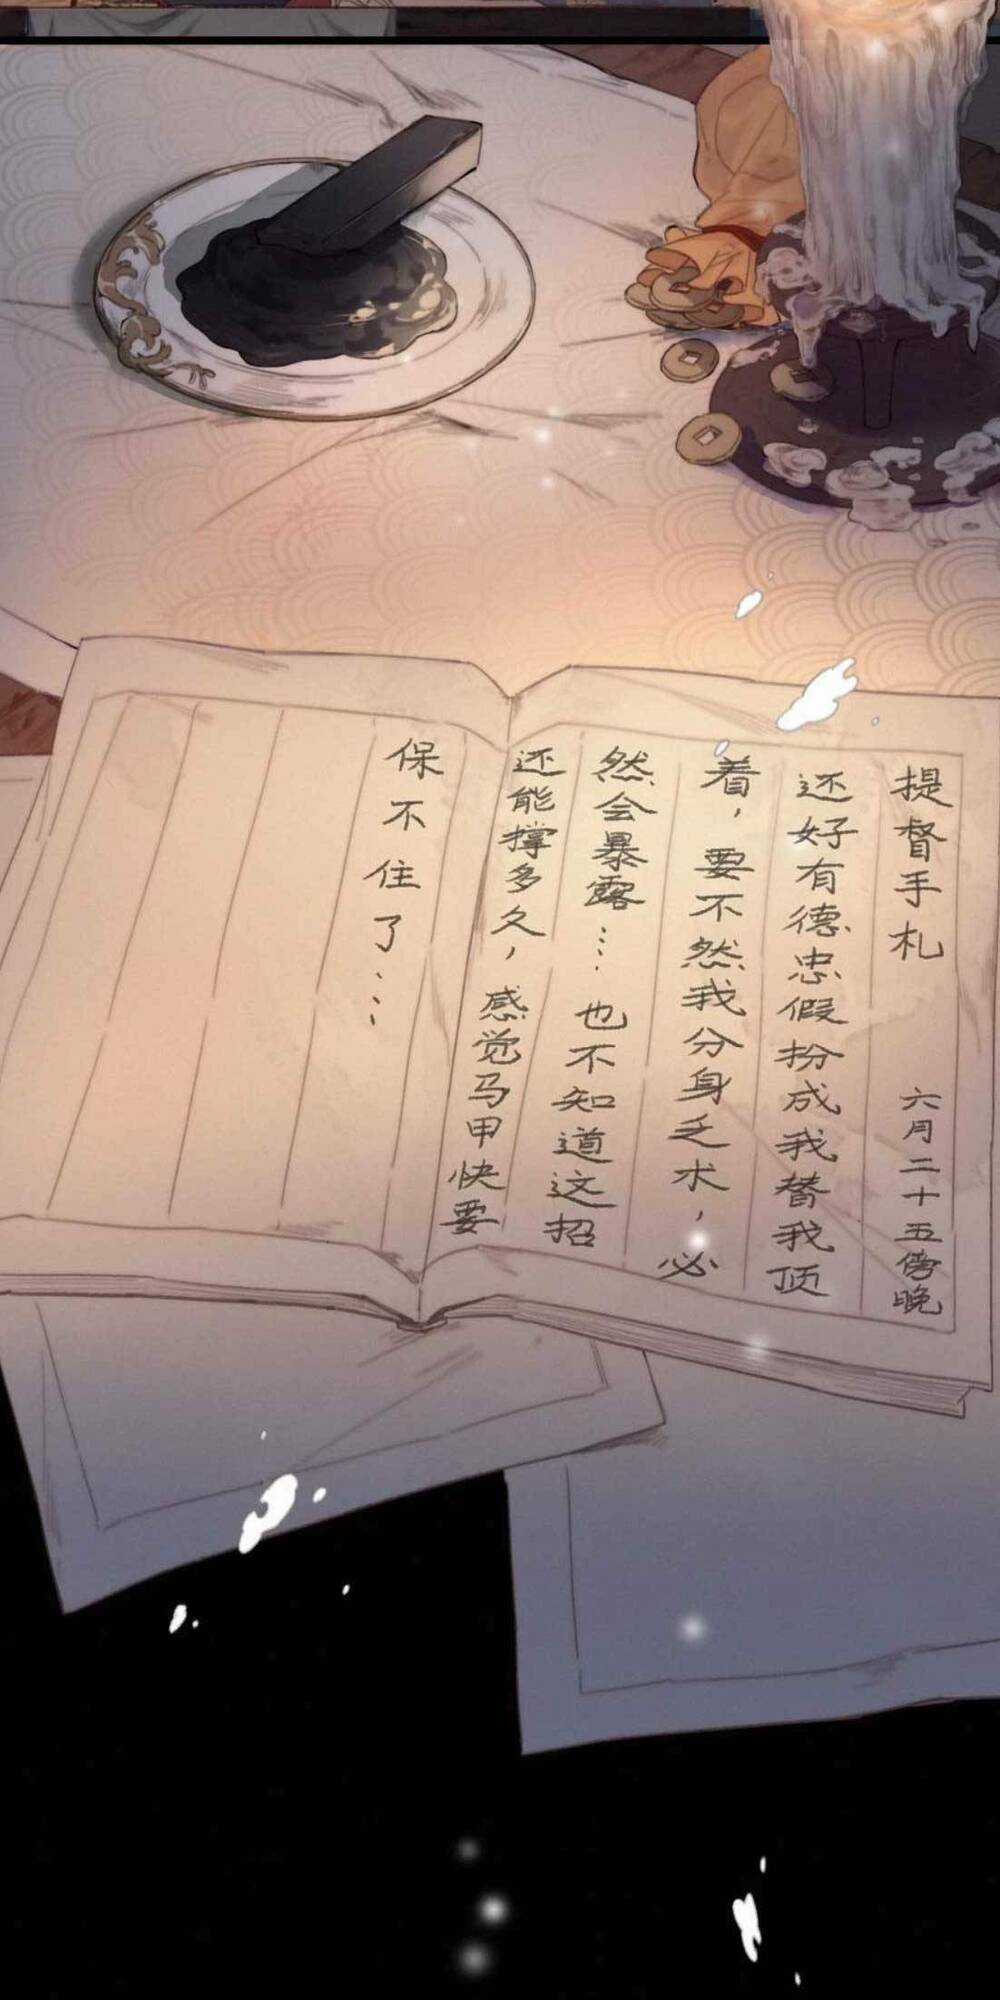 提督手札 六月二十五傍晚
还好有德忠假扮成我替我顶
着，要不然我分身乏术，必
然会暴露… 也不知道这招
还能撑多久，感觉马甲快要
保不住了…